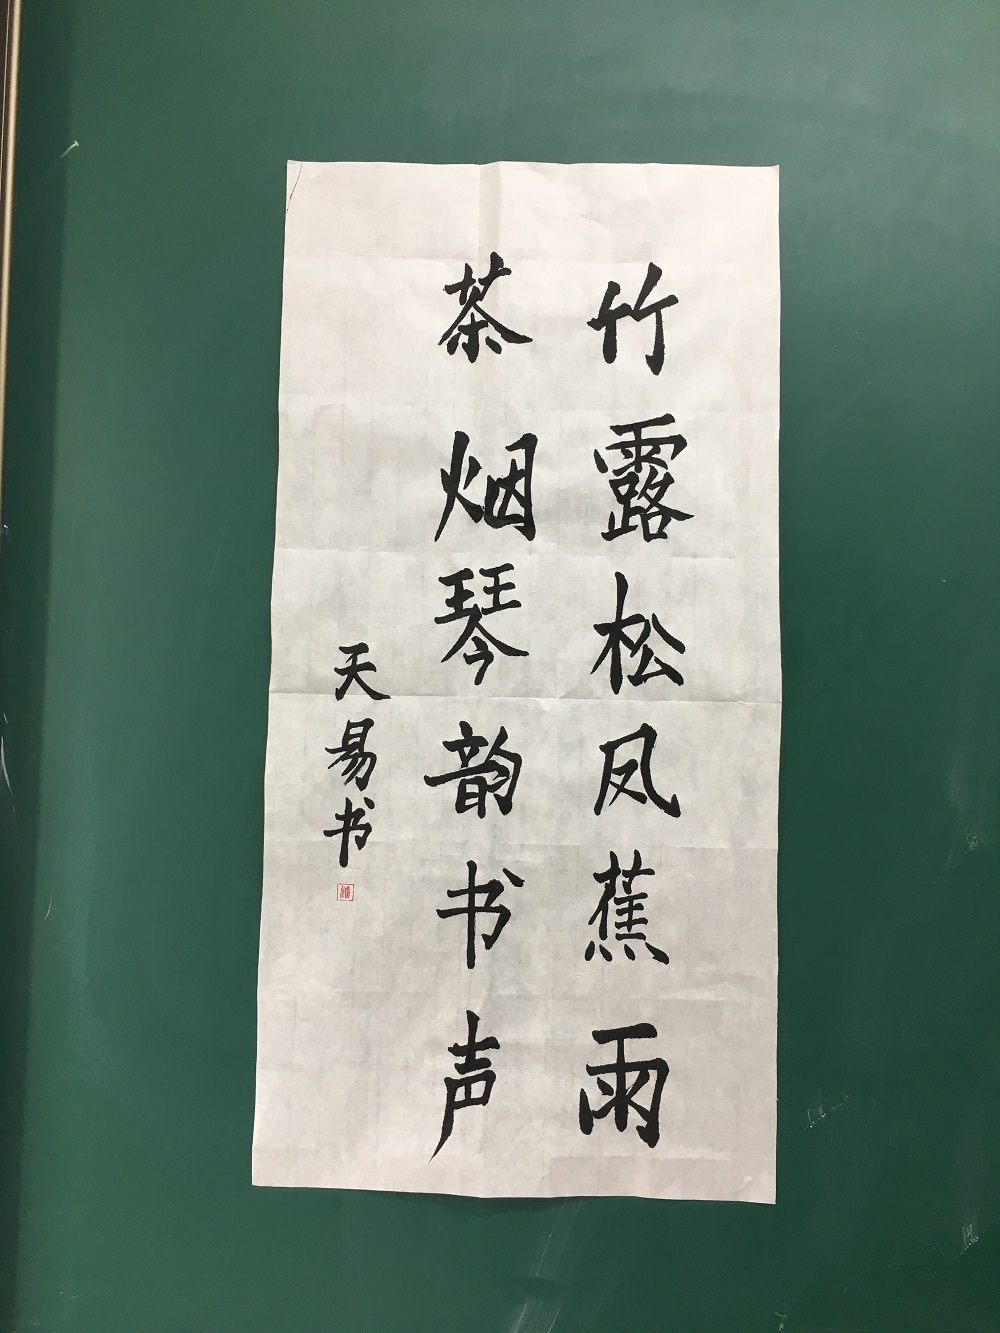 竹露松凤蕉雨
茶烟琴韵书声
天易书